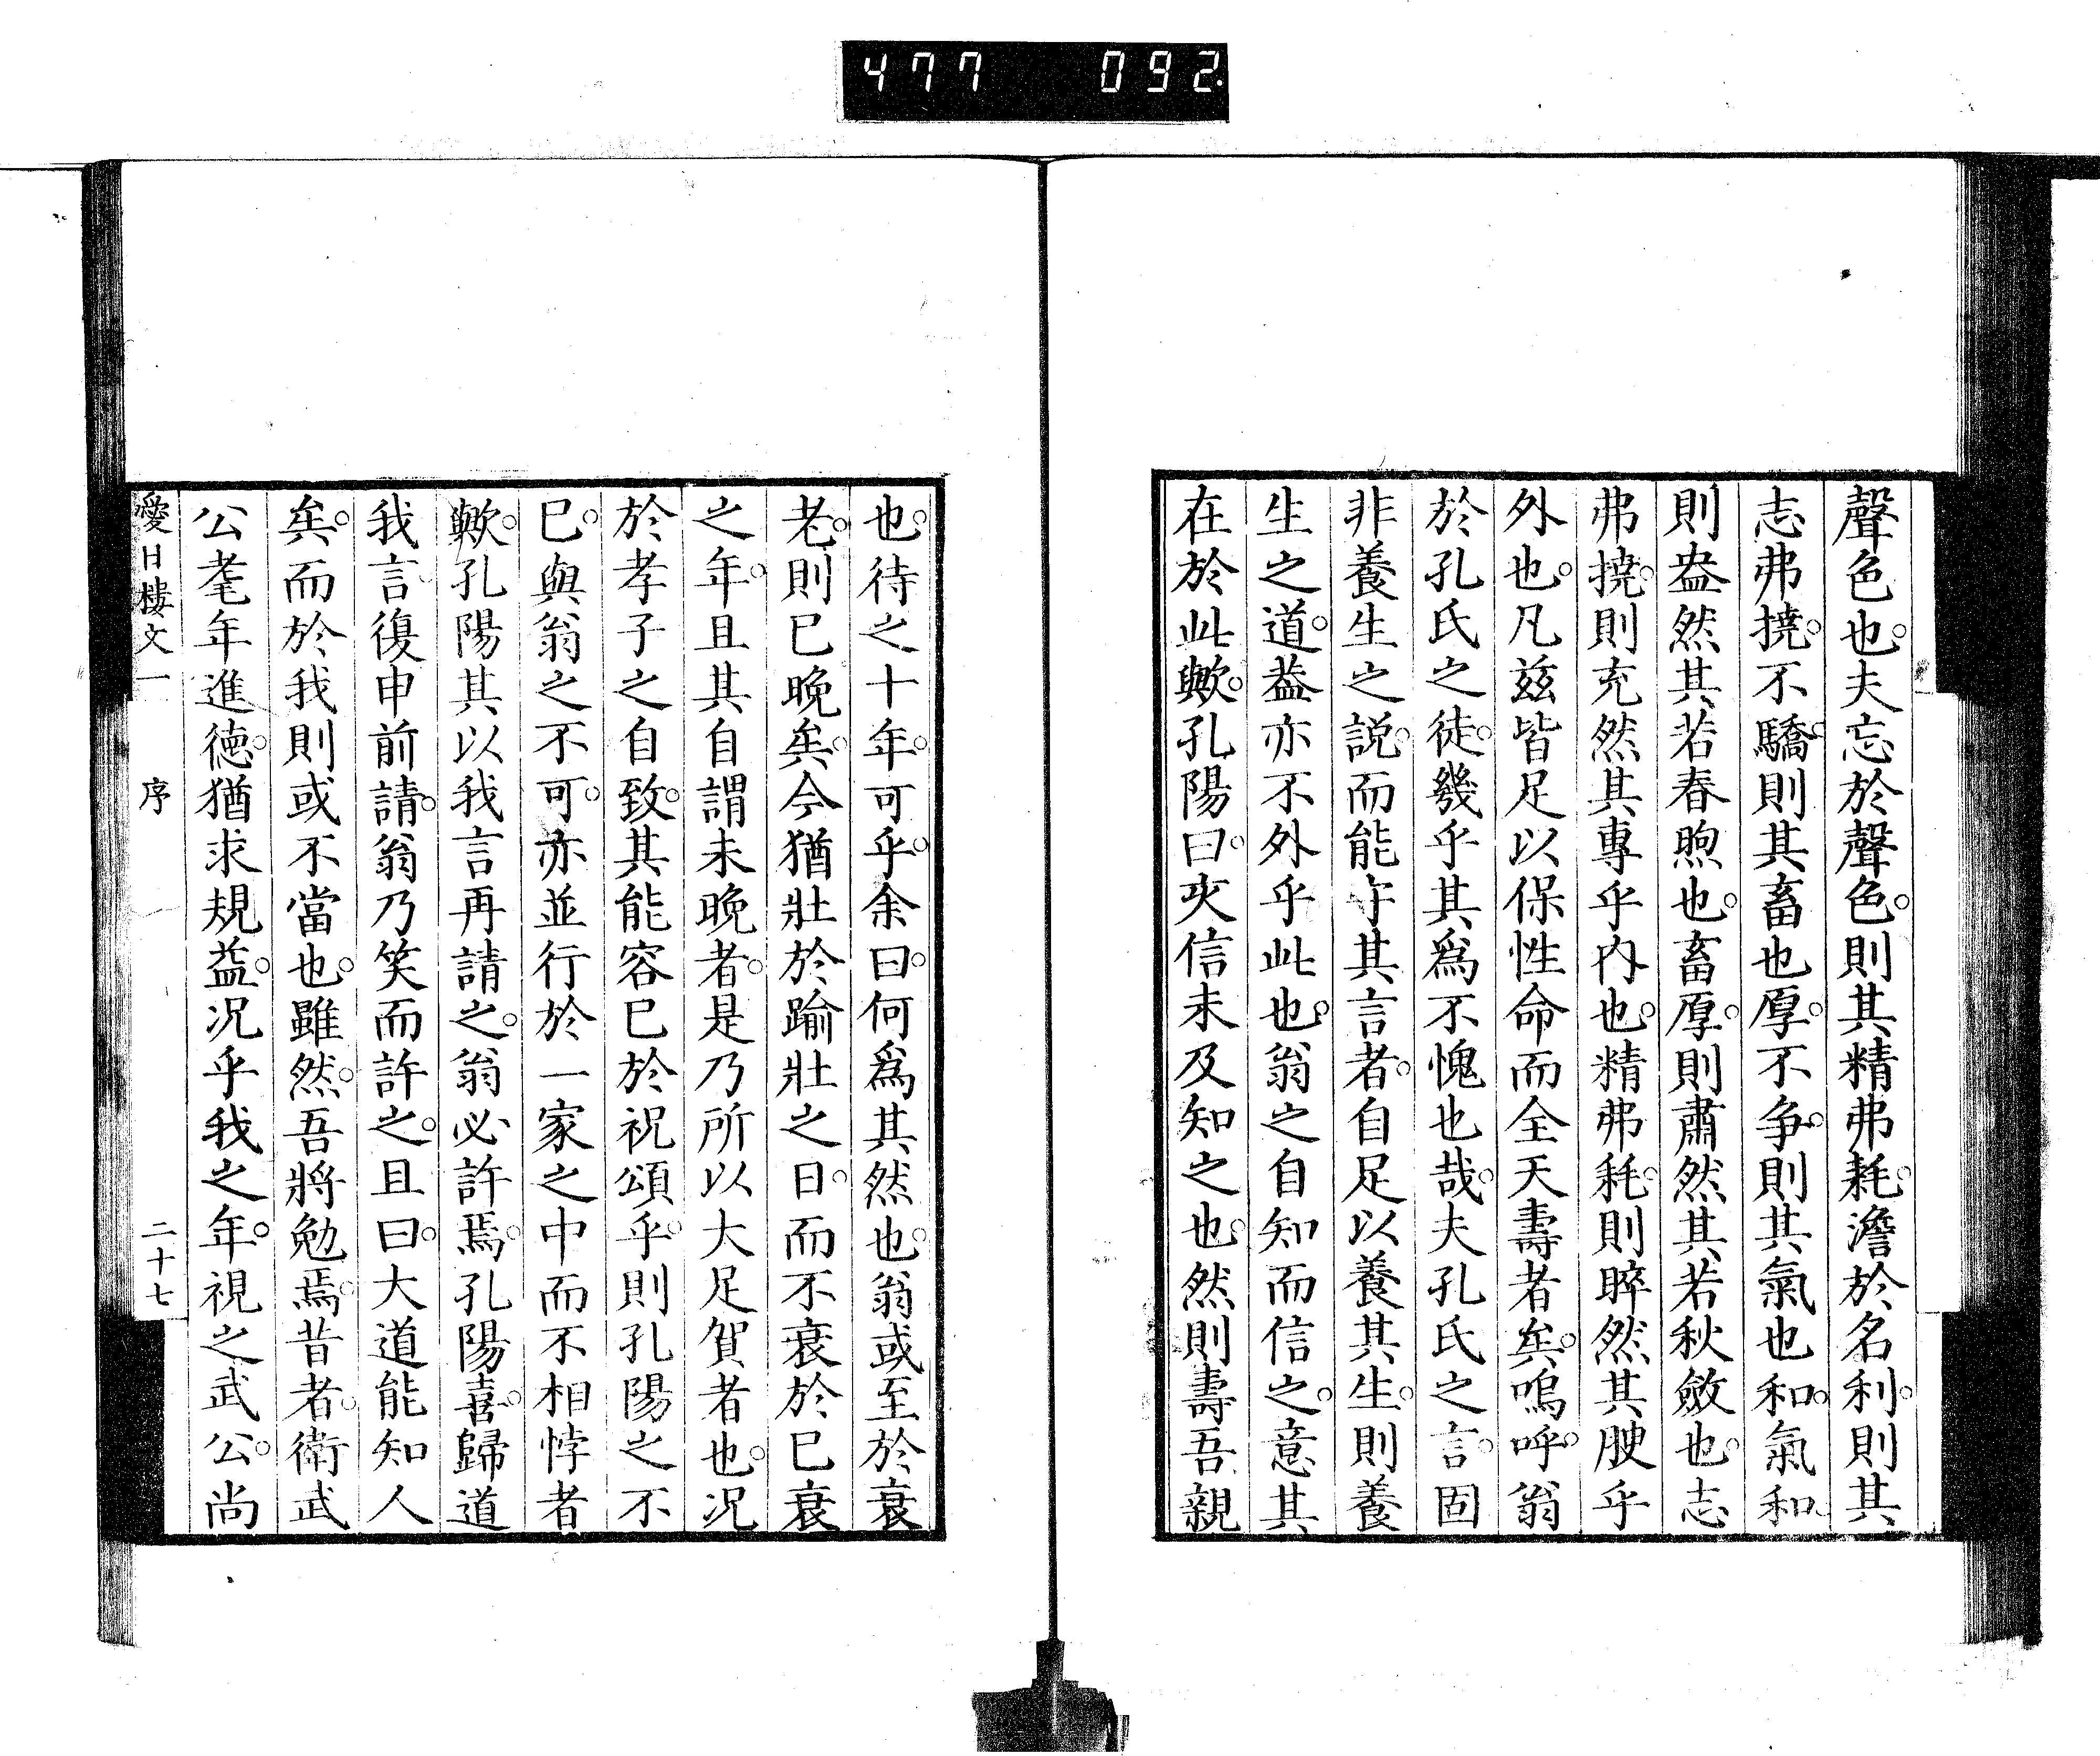 477 092
聲色也。夫忘於聲色。則其精弗耗。澹於名利。則其
志弗撓。不驕。則其畜也厚。不争。則其氣也和。氣和。
則盎然其若春煦也。畜厚。則肅然其若秋斂也。志
弗撓。則充然其專乎内也。精弗耗。則睟然其腴乎
外也。凡兹皆足以保性命而全天壽者矣。嗚呼。翁
於孔氏之徒。幾乎其爲不愧也哉。夫孔氏之言。固
非養生之説。而能守其言者。自足以養其生。則養
生之道。葢亦不外乎此也。翁之自知而信之。意其
在於此歟。孔陽曰。夾信未及知之也。然則壽吾親
也。待之十年。可乎。余曰。何爲其然也。翁或至於衰
老。則已晩矣。今猶壯於踰壯之日。而不衰於已衰
之年。且其自謂未晩者。是乃所以大足賀者也。况
於孝子之自致。其能容已於祝頌乎。則孔陽之不
已。與翁之不可。亦並行於一家之中而不相悖者
歟。孔陽其以我言再請之。翁必許焉。孔陽喜。歸道
我言。復申前請。翁乃笑而許之。且曰。大道能知人
矣。而於我則或不當也。雖然。吾將勉焉。昔者。衛武
公耄年進德。猶求規益。况乎我之年。視之武公。尚
愛日樓文一 序 二十七